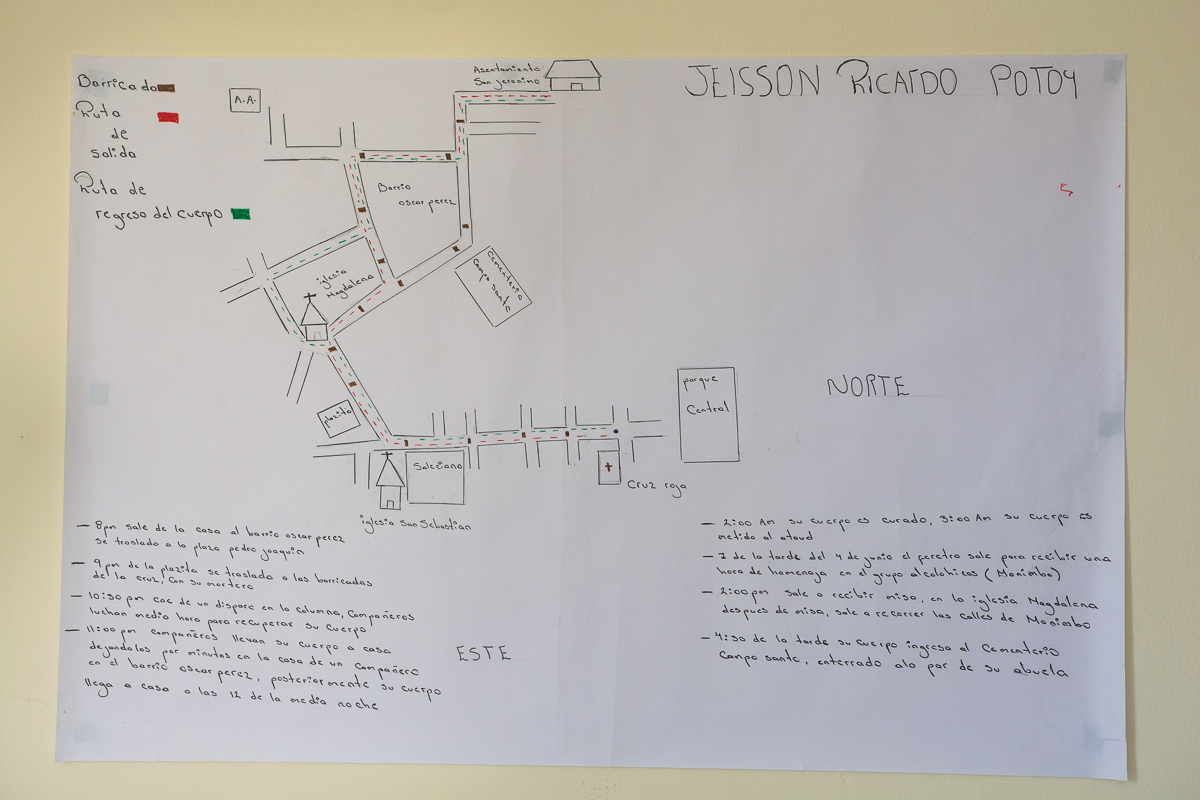 JEISSON RICARDO POTOY
Barricada
Ruta
de
salida
Ruta de
regreso del cuerpo
A.A.
Asentamiento
San jeronimo
Barrio
oscar perez
iglesia
Magdalena
Cementerio
Campo santo
plazita
Saleciano
iglesia San Sebastian
Cruz roja
parque
Central
NORTE
ESTE
— 8pm sale de la casa al barrio oscar perez
se traslado a la plaza pedro joaquin
— 9pm de la plazita se traslado a las barricadas
de la cruz, con su mortero
— 10:30 pm cae de un disparo en la columna, Compañeros
luchan media hora para recuperar su cuerpo
— 11:00 pm compañeros llevan su cuerpo a casa
dejandolos por minutos en la casa de un compañero
en el barrio oscar perez, posteriormente su cuerpo
llega a casa a las 12 de la media noche
— 2:00 Am su cuerpo es curado, 3:00 Am su cuerpo es
metido al ataud
— 1 de la tarde del 4 de junio el feretro sale para recibir una
hora de homenaja en el grupo alcolohicos (Monimbo)
— 2:00 pm sale a recibir misa, en la iglesia Magdalena
despues de misa, sale a recorrer las calles de Monimbo
— 4:30 de la tarde su cuerpo ingresa al Cementerio
Campo santo, enterrado alo par de su abuela